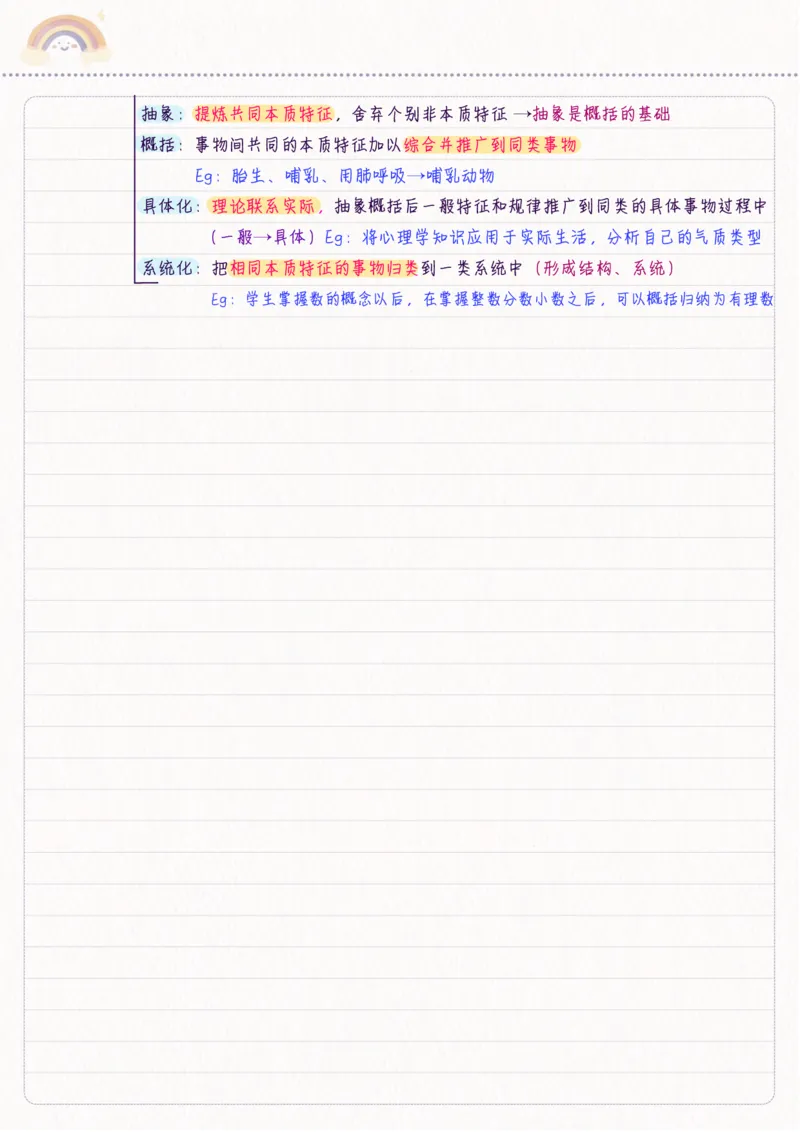 抽象：提炼共同本质特征，舍弃个别非本质特征→抽象是概括的基础
概括：事物间共同的本质特征加以综合并推广到同类事物
Eg：胎生、哺乳、用肺呼吸→哺乳动物
具体化：理论联系实际，抽象概括后一般特征和规律推广到同类的具体事物过程中
（一般→具体）Eg：将心理学知识应用于实际生活，分析自己的气质类型
系统化：把相同本质特征的事物归类到一类系统中（形成结构、系统）
Eg：学生掌握数的概念以后，在掌握整数分数小数之后，可以概括归纳为有理数